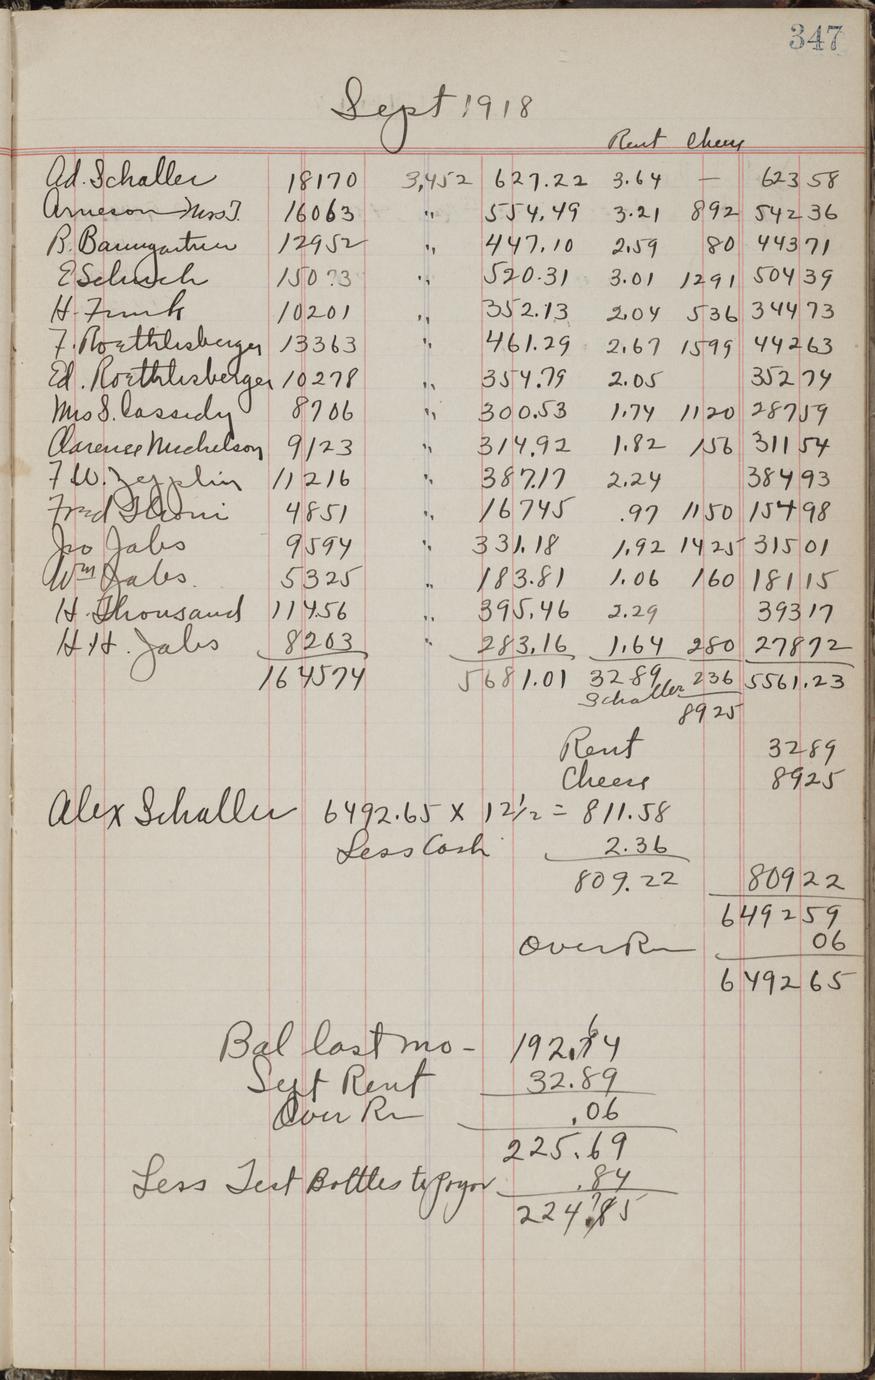 347
Sept 1918
Rent Cheese
Ad. Schaller 18170 3,452 627.22 3.64 — 623 58
Arneson Mrs T. 16063 " 554.49 3.21 892 542 36
B. Baumgartner 12952 " 447.10 2.59 80 443 71
E Schuch 15073 " 520.31 3.01 1291 504 39
H. Funk 10201 " 352.13 2.04 536 344 73
F. Roethlisberger 13363 " 461.29 2.67 1599 442 63
Ed. Roethlisberger 10278 " 354.79 2.05 352 74
Mrs S. Cassidy 8706 " 300.53 1.74 1120 287 59
Clarence Michelson 9123 " 314.92 1.82 156 311 54
F W. Zepplin 11216 " 387.17 2.24 384 93
Fred 4851 " 167 45 .97 1150 154 98
Jno Jabs 9594 " 331.18 1.92 1425 315 01
Wm Jabs. 5325 " 183.81 1.06 160 181 15
H. Thousand 11456 " 395.46 2.29 393 17
H H. Jabs 8203 " 283.16 1.64 280 278 72
164574 5681.01 32 89 Schaller 236 5561.23
8925
Rent 32 89
Cheese 89 25
Alex Schaller 6492.65 x 12 1/2 = 811.58
Less Cash 2.36
809.22 809 22
6492 59
Over Rn 06
6492 65
Bal last mo - 192.74 6
Sept Rent 32.89
Over Rn .06
225.69
Less Test Bottles to Pryor .84
224.85